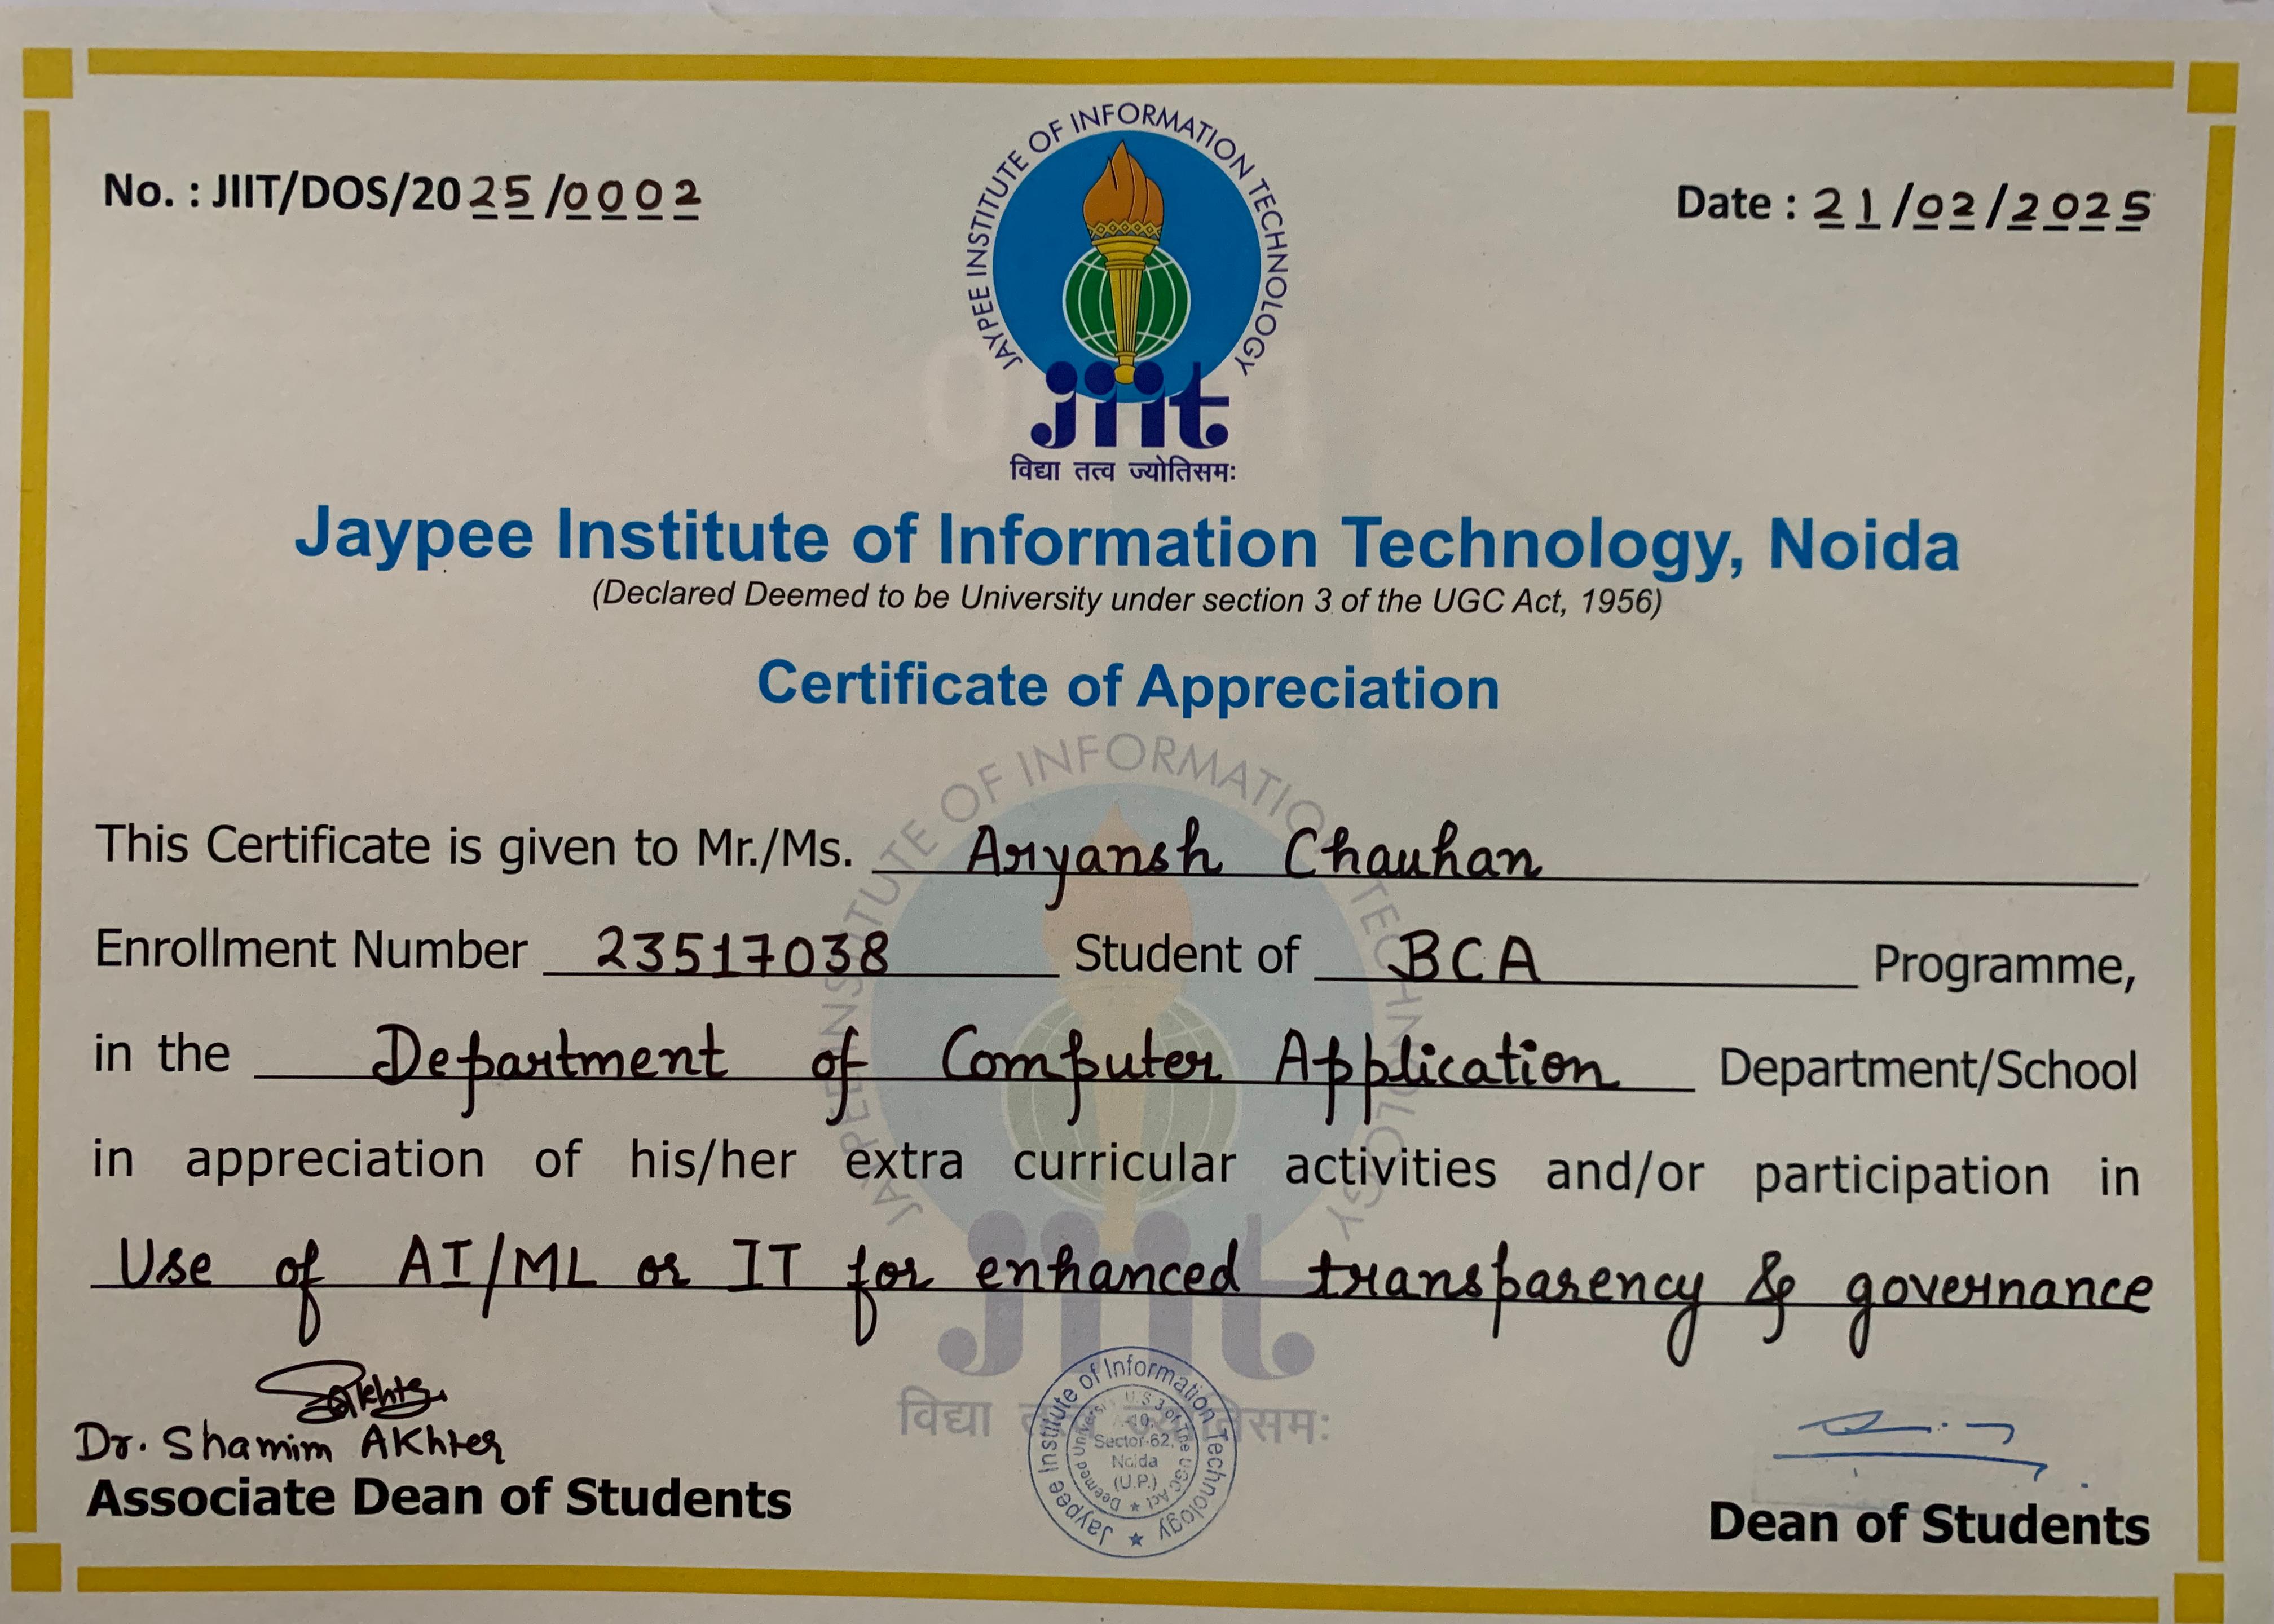 No. : JIIT/DOS/2025/0002
Date : 21/02/2025
JAYPEE INSTITUTE OF INFORMATION TECHNOLOGY
jiit
विद्या तत्व ज्योतिसमः
Jaypee Institute of Information Technology, Noida
(Declared Deemed to be University under section 3 of the UGC Act, 1956)
Certificate of Appreciation
This Certificate is given to Mr./Ms. Aryansh Chauhan
Enrollment Number 23517038 Student of BCA Programme,
in the Department of Computer Application Department/School
in appreciation of his/her extra curricular activities and/or participation in
Use of AI/ML or IT for enhanced transparency & governance
JAYPEE INSTITUTE OF INFORMATION TECHNOLOGY
jiit
विद्या तत्व ज्योतिसमः
SAkhter
Dr. Shamim AKhter
Associate Dean of Students
Jaypee Institute of Information Technology
Deemed University U/S 3 of The UGC Act
Sector-62,
Noida
(U.P.)
Dean of Students